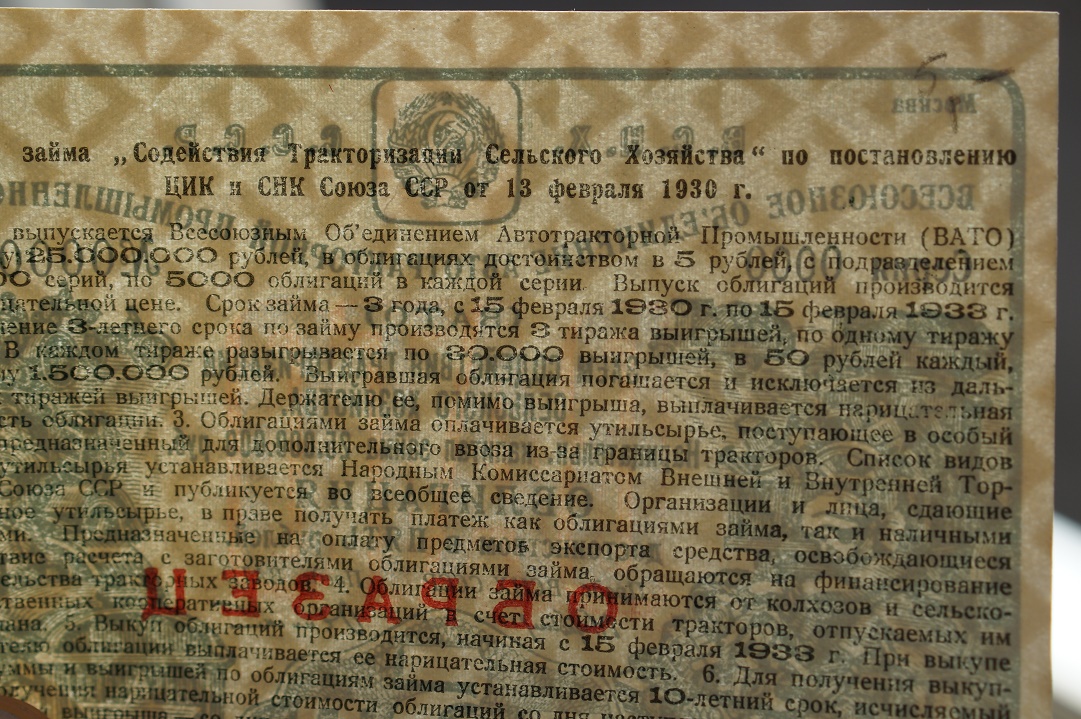 займа „Содействия Тракторизации Сельского Хозяйства“ по постановлению
ЦИК и СНК Союза ССР от 13 февраля 1930 г.
выпускается Всесоюзным Об'единением Автотракторной Промышленности (ВАТО)
25.000.000 рублей, в облигациях достоинством в 5 рублей, с подразделением
серий, по 5000 облигаций в каждой серии. Выпуск облигаций производится
цене. Срок займа — 3 года, с 15 февраля 1930 г. по 15 февраля 1933 г.
3-летнего срока по займу производятся 3 тиража выигрышей, по одному тиражу
В каждом тираже разыгрывается по 30.000 выигрышей, в 50 рублей каждый,
1.500.000 рублей. Выигравшая облигация погашается и исключается из даль-
тиражей выигрышей. Держателю ее, помимо выигрыша, выплачивается нарицательная
облигации. 3. Облигациями займа оплачивается утильсырье, поступающее в особый
предназначенный для дополнительного ввоза из-за границы тракторов. Список видов
утильсырья устанавливается Народным Комиссариатом Внешней и Внутренней Тор-
Союза ССР и публикуется во всеобщее сведение. Организации и лица, сдающие
утильсырье, в праве получать платеж как облигациями займа, так и наличными
Предназначенные на оплату предметов экспорта средства, освобождающиеся
расчета с заготовителями облигациями займа, обращаются на финансирование
тракторных заводов. 4. Облигации займа принимаются от колхозов и сельско-
кооперативных организаций в счет стоимости тракторов, отпускаемых им
5. Выкуп облигаций производится, начиная с 15 февраля 1933 г. При выкупе
облигации выплачивается ее нарицательная стоимость. 6. Для получения выкуп-
и выигрышей по облигациям займа устанавливается 10-летний срок, исчисляемый
нарицательной стоимости облигаций со дня
выигрыша
ОБРАЗЕЦ
Москва